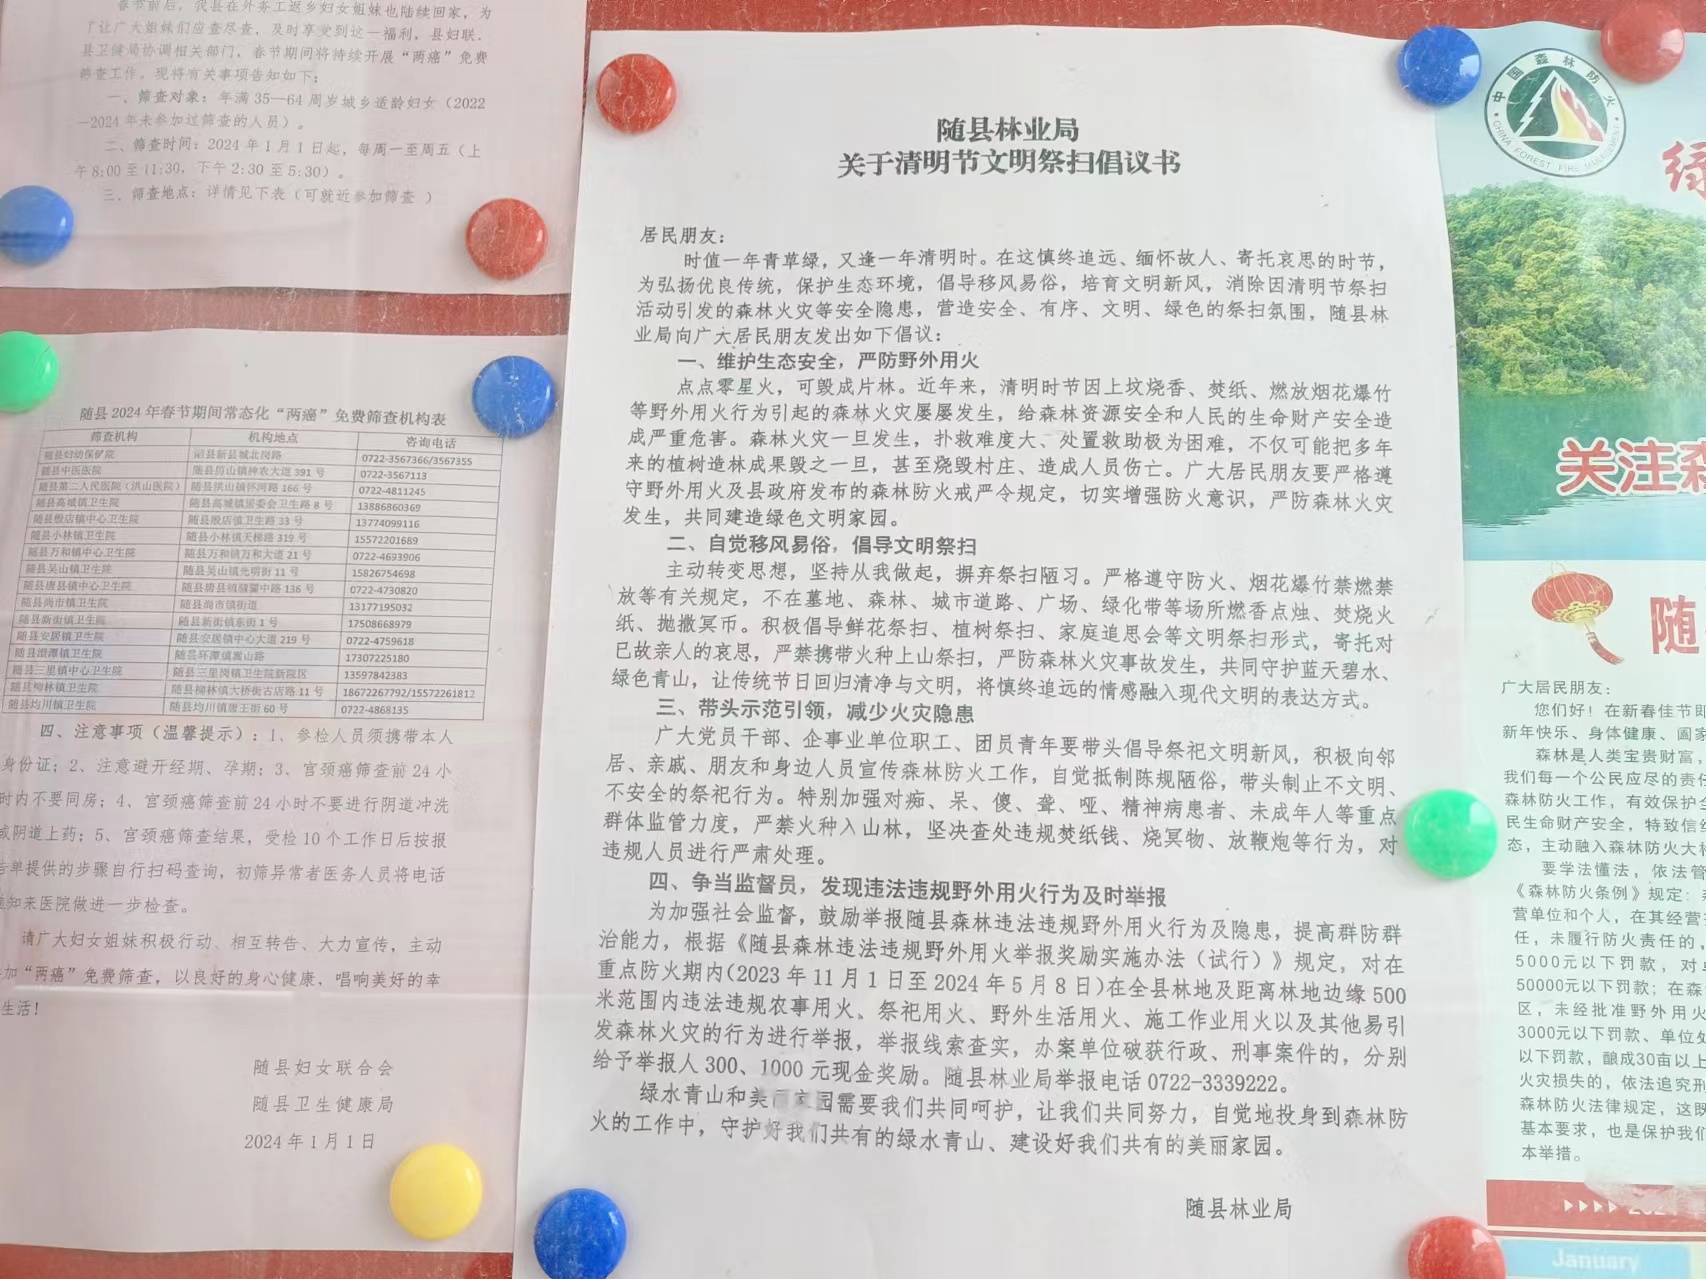 春节前后，我县在外务工返乡妇女姐妹也陆续回家，为
了让广大姐妹们应查尽查，及时享受到这一福利，县妇联、
县卫健局协调相关部门，春节期间将持续开展“两癌”免费
筛查工作。现将有关事项告知如下：
一、筛查对象：年满35—64周岁城乡适龄妇女（2022
—2024年未参加过筛查的人员）。
二、筛查时间：2024年1月1日起，每周一至周五（上
午8:00至11:30，下午2:30至5:30）。
三、筛查地点：详情见下表（可就近参加筛查 ）
随县2024年春节期间常态化“两癌”免费筛查机构表
筛查机构 机构地点 咨询电话
随县妇幼保健院 随县新县城北岗路 0722-3567366/3567355
随县中医医院 随县厉山镇神农大道391号 0722-3567113
随县第二人民医院（洪山医院） 随县洪山镇怀河路166号 0722-4811245
随县高城镇卫生院 随县高城镇居委会卫生路8号 13886860369
随县殷店镇中心卫生院 随县殷店镇卫生路33号 13774099116
随县小林镇卫生院 随县小林镇天梯路319号 15572201689
随县万和镇中心卫生院 随县万和镇万和大道21号 0722-4693906
随县吴山镇卫生院 随县吴山镇光明街11号 15826754698
随县唐县镇中心卫生院 随县唐县镇中路136号 0722-4730820
随县尚市镇卫生院 随县尚市镇街道 13177195032
随县新街镇卫生院 随县新街镇东街1号 17508668979
随县安居镇卫生院 随县安居镇中心大道219号 0722-4759618
随县澴潭镇卫生院 随县环潭镇嵩山路 17307225180
随县三里镇中心卫生院 随县三里岗镇卫生院新院区 13597842383
随县柳林镇卫生院 随县柳林镇大桥街古店路11号 18672267792/15572261812
随县均川镇卫生院 随县均川镇唐王街60号 0722-4868135
四、注意事项（温馨提示）：1、参检人员须携带本人
身份证；2、注意避开经期、孕期；3、宫颈癌筛查前24小
时内不要同房；4、宫颈癌筛查前24小时不要进行阴道冲洗
或阴道上药；5、宫颈癌筛查结果，受检10个工作日后按报
告单提供的步骤自行扫码查询，初筛异常者医务人员将电话
通知来医院做进一步检查。
请广大妇女姐妹积极行动、相互转告、大力宣传，主动
加“两癌”免费筛查，以良好的身心健康，唱响美好的幸
生活！
随县妇女联合会
随县卫生健康局
2024年1月1日
随县林业局
关于清明节文明祭扫倡议书
居民朋友：
时值一年青草绿，又逢一年清明时。在这慎终追远、缅怀故人、寄托哀思的时节，
为弘扬优良传统，保护生态环境，倡导移风易俗，培育文明新风，消除因清明节祭扫
活动引发的森林火灾等安全隐患，营造安全、有序、文明、绿色的祭扫氛围，随县林
业局向广大居民朋友发出如下倡议：
一、维护生态安全，严防野外用火
点点零星火，可毁成片林。近年来，清明时节因上坟烧香、焚纸、燃放烟花爆竹
等野外用火行为引起的森林火灾屡屡发生，给森林资源安全和人民的生命财产安全造
成严重危害。森林火灾一旦发生，扑救难度大、处置救助极为困难，不仅可能把多年
来的植树造林成果毁之一旦，甚至烧毁村庄、造成人员伤亡。广大居民朋友要严格遵
守野外用火及县政府发布的森林防火戒严令规定，切实增强防火意识，严防森林火灾
发生，共同建造绿色文明家园。
二、自觉移风易俗，倡导文明祭扫
主动转变思想，坚持从我做起，摒弃祭扫陋习。严格遵守防火、烟花爆竹禁燃禁
放等有关规定，不在墓地、森林、城市道路、广场、绿化带等场所燃香点烛、焚烧火
纸、抛撒冥币。积极倡导鲜花祭扫、植树祭扫、家庭追思会等文明祭扫形式，寄托对
已故亲人的哀思，严禁携带火种上山祭扫，严防森林火灾事故发生，共同守护蓝天碧水、
绿色青山，让传统节日回归清净与文明，将慎终追远的情感融入现代文明的表达方式。
三、带头示范引领，减少火灾隐患
广大党员干部、企事业单位职工、团员青年要带头倡导祭祀文明新风，积极向邻
居、亲戚、朋友和身边人员宣传森林防火工作，自觉抵制陈规陋俗，带头制止不文明、
不安全的祭祀行为。特别加强对痴、呆、傻、聋、哑、精神病患者、未成年人等重点
群体监管力度，严禁火种入山林，坚决查处违规焚纸钱、烧冥物、放鞭炮等行为，对
违规人员进行严肃处理。
四、争当监督员，发现违法违规野外用火行为及时举报
为加强社会监督，鼓励举报随县森林违法违规野外用火行为及隐患，提高群防群
治能力，根据《随县森林违法违规野外用火举报奖励实施办法（试行）》规定，对在
重点防火期内(2023年11月1日至2024年5月8日)在全县林地及距离林地边缘500
米范围内违法违规农事用火、祭祀用火、野外生活用火、施工作业用火以及其他易引
发森林火灾的行为进行举报，举报线索查实，办案单位破获行政、刑事案件的，分别
给予举报人300、1000元现金奖励。随县林业局举报电话0722-3339222。
绿水青山和美丽家园需要我们共同呵护，让我们共同努力，自觉地投身到森林防
火的工作中，守护好我们共有的绿水青山、建设好我们共有的美丽家园。
随县林业局
中国森林防火
CHINA FOREST FIRE MANAGEMENT
绿
关注森
随
广大居民朋友：
您们好！在新春佳节即
新年快乐、身体健康、阖家
森林是人类宝贵财富，
我们每一个公民应尽的责任
森林防火工作，有效保护全
民生命财产安全，特致信给
态，主动融入森林防火大格
要学法懂法，依法管
《森林防火条例》规定：
营单位和个人，在其经营
任，未履行防火责任的，
5000元以下罚款，对单
50000元以下罚款；在森
区，未经批准野外用火
3000元以下罚款、单位处
以下罚款，酿成30亩以上
火灾损失的，依法追究刑
森林防火法律规定，这既
基本要求，也是保护我们
本举措。
January